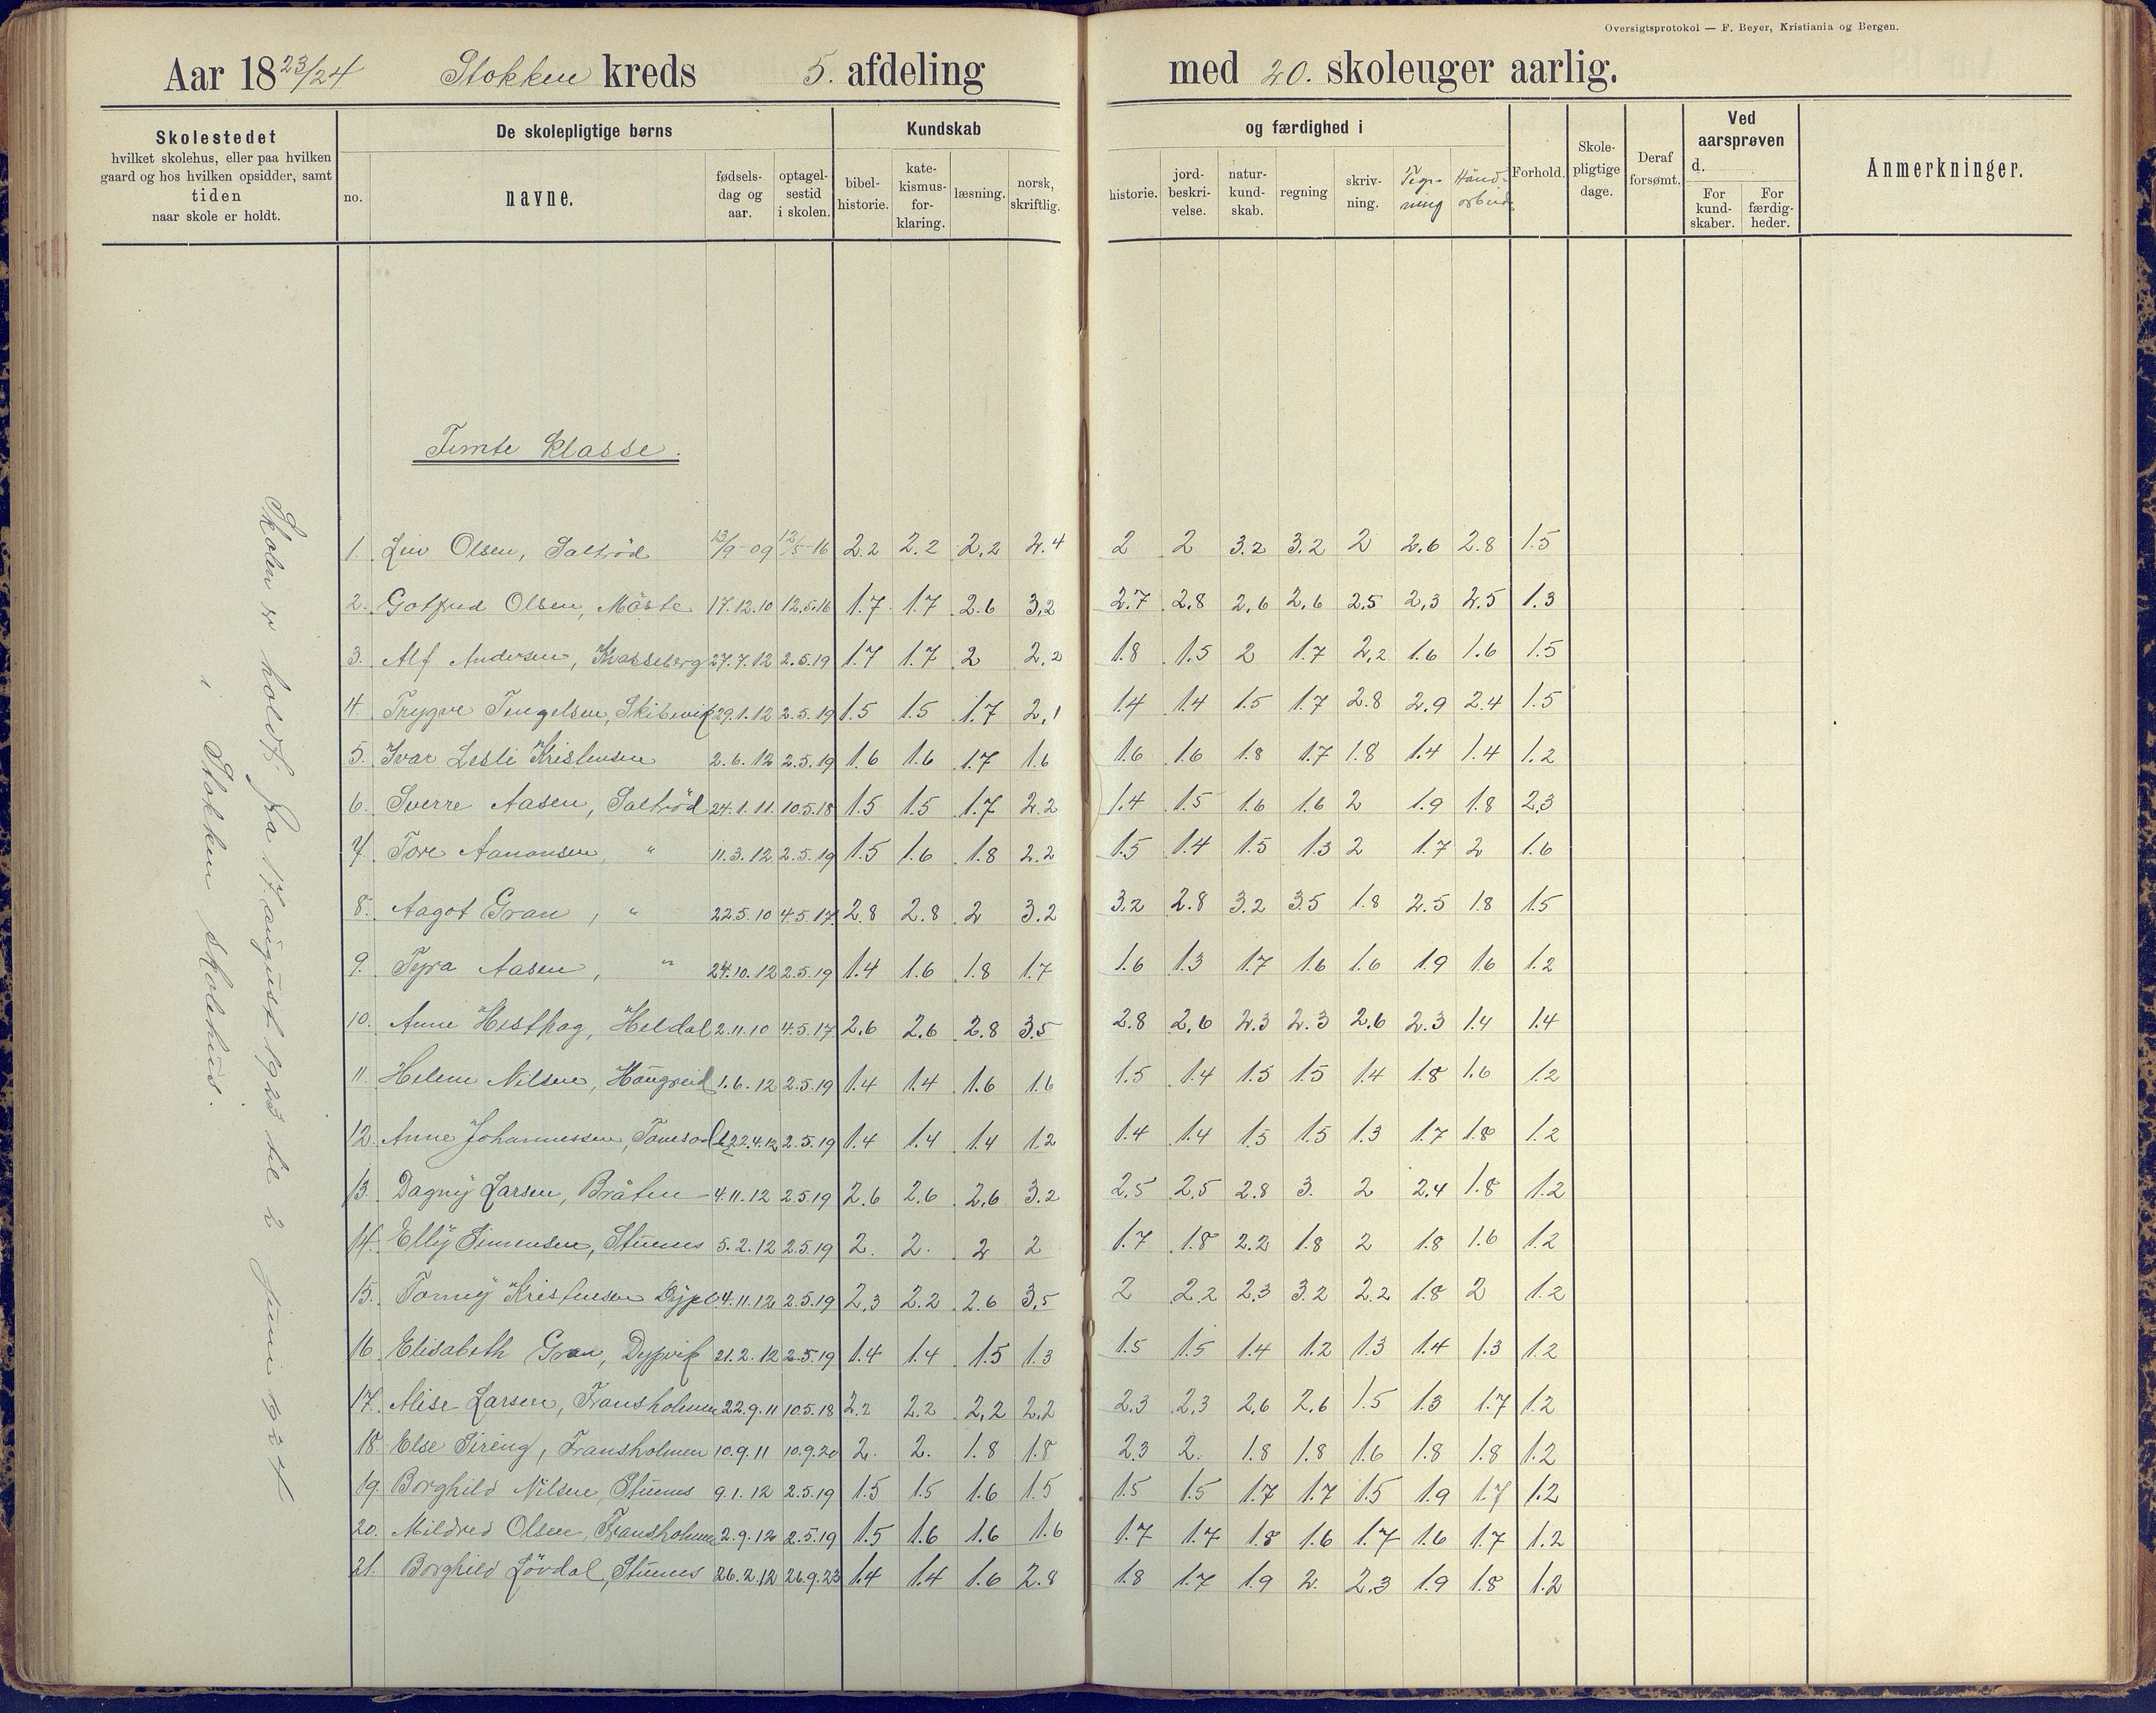 Oversigtsprotokol — F. Beyer, Kristiania og Bergen.
Aar 18 23/24 Stokken kreds 5. afdeling med 20. skoleuger aarlig.
Skolestedet
hvilket skolehus, eller paa hvilken
gaard og hos hvilken opsidder, samt
tiden
naar skole er holdt.
De skolepligtige børns
no.
navne.
fødsels-
dag og
aar.
optagel-
sestid
i skolen.
Kundskab
bibel-
historie.
kate-
kismus-
for-
klaring.
læsning.
norsk,
skriftlig.
og færdighed i
historie.
jord-
beskri-
velse.
natur-
kund-
skab.
regning
skriv-
ning.
Tegn-
ning
Hånd-
arbeid
Forhold.
Skole-
pligtige
dage.
Deraf
forsømt.
Ved
aarsprøven
d.
For
kund-
skaber.
For
færdig-
heder.
Anmerkninger.
Skolen er holdt fra 17. august 1923 til 2 juni 1924
i Stokken skolehus.
Femte klasse.
1. Liv Olsen, Saltrød 13/9-09 12/5-16 2.2 2.2 2.2 2.4 2 2 3.2 3.2 2 2.6 2.8 1.5
2. Gotfred Olsen, Måste 17.12.10 12.5.16 1.7 1.7 2.6 3.2 2.7 2.8 2.6 2.6 2.5 2.3 2.5 1.3
3. Alf Andersen, Kvasseberg 27.7.12 2.5.19 1.7 1.7 2 2.2 1.8 1.5 2 1.7 2.2 1.6 1.6 1.5
4. Trygve Tengelsen, Skibevik 29.1.12 2.5.19 1.5 1.5 1.7 2.1 1.4 1.4 1.5 1.7 2.8 2.9 2.4 1.5
5. Ivar Lesli Kristensen 2.6.12 2.5.19 1.6 1.6 1.7 1.6 1.6 1.6 1.8 1.7 1.8 1.4 1.4 1.2
6. Sverre Aasen, Saltrød 24.1.11. 10.5.18 1.5 1.5 1.7 2.2 1.4 1.5 1.6 1.6 2 1.9 1.8 2.3
7. Tore Aanonsen, " 11.3.12 2.5.19 1.5 1.6 1.8 2.2 1.5 1.4 1.5 1.3 2 1.7 2 1.6
8. Aagot Gran, " 22.5.10 4.5.17 2.8 2.8 2 3.2 3.2 2.8 3.2 3.5 1.8 2.5 1.8 1.5
9. Tyra Aasen, " 24.10.12 2.5.19 1.4 1.6 1.8 1.7 1.6 1.3 1.7 1.6 1.6 1.9 1.6 1.2
10. Anne Hesthag, Heldal 2.11.10 4.5.17 2.6 2.6 2.8 3.5 2.8 2.6 2.3 2.3 2.6 2.3 1.4 1.4
11. Helene Nilsen, Haugreid 1.6.12 2.5.19 1.4 1.4 1.6 1.6 1.5 1.4 1.5 1.5 1.4 1.8 1.6 1.2
12. Anne Johannessen, 22.4.12 2.5.19 1.4 1.4 1.4 1.2 1.4 1.4 1.5 1.5 1.3 1.7 1.8 1.2
13. Dagny Larsen, Bråten 4.11.12 2.5.19 2.6 2.6 2.6 3.2 2.5 2.5 2.8 3. 2 2.4 1.8 1.2
14. Elly Simonsen, Stuenes 5.2.12 2.5.19 2. 2. 2 2 1.7 1.8 2.2 1.8 2 1.8 1.6 1.2
15. Kristensen 4.11.12 2.5.19 2.3 2.2 2.6 3.5 2 2.2 2.3 3.2 2.2 1.8 2 1.2
16. Elisabeth Gran, Dypvik 21.2.12 2.5.19 1.4 1.4 1.5 1.3 1.5 1.5 1.4 1.2 1.3 1.4 1.3 1.2
17. Alise Larsen, Fransholmen 22.9.11 10.5.18 2.2 2.2 2.2 2.2 2.3 2.3 2.6 2.6 1.5 1.3 1.7 1.2
18. Else Sireng, Fransholmen 10.9.11 10.9.20 2. 2. 1.8 1.8 2.3 2. 1.8 1.8 1.6 1.8 1.8 1.2
19. Borghild Nilsen, Stuenes 9.1.12 2.5.19 1.5 1.5 1.6 1.5 1.5 1.5 1.7 1.7 1.5 1.9 1.7 1.2
20. Mildred Olsen, Fransholmen 2.9.12 2.5.19 1.5 1.6 1.6 1.6 1.7 1.7 1.8 1.6 1.7 1.6 1.7 1.2
21. Borghild Løvdal, Stuenes 26.2.12 26.9.23 1.4 1.4 1.6 2.8 1.8 1.7 1.9 2. 2.3 1.9 1.8 1.2